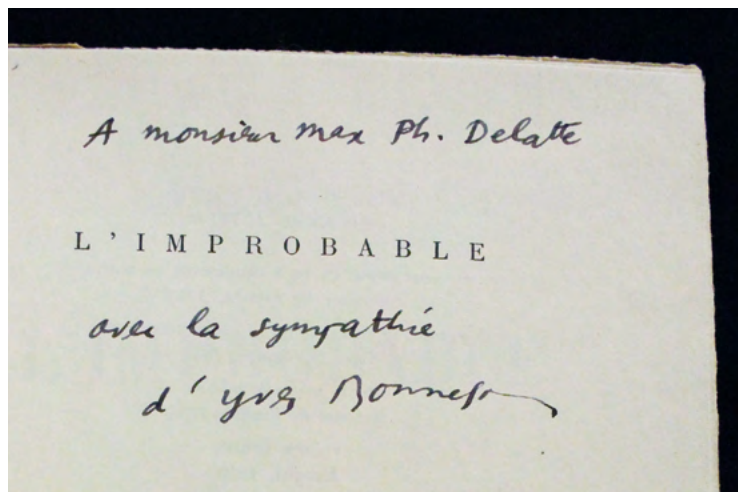 A monsieur Max Ph. Delatte
L'IMPROBABLE
avec la sympathie
d'Yves Bonnefoy